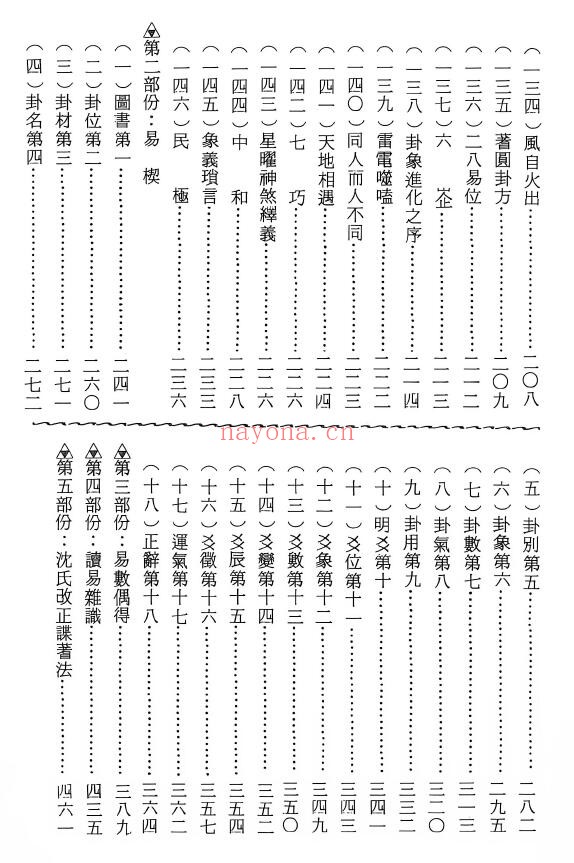 （一三四）風自火出……………………二〇八
（一三五）著圓卦方……………………二〇九
（一三六）二八易位……………………二一二
（一三七）六　峜……………………二一三
（一三八）卦象進化之序……………………二一四
（一三九）雷電噬嗑……………………二二二
（一四〇）同人而人不同……………………二二三
（一四一）天地相遇……………………二二四
（一四二）七　巧……………………二二六
（一四三）星曜神煞繹義……………………二二六
（一四四）中　和……………………二二八
（一四五）象義瑣言……………………二三三
（一四六）民　極……………………二三六
第二部份：易　楔
（一）圖書第一……………………二四一
（二）卦位第二……………………二六〇
（三）卦材第三……………………二七一
（四）卦名第四……………………二七二
nayona.cn
（五）卦別第五……………………二八二
（六）卦象第六……………………二九五
（七）卦數第七……………………三一三
（八）卦氣第八……………………三二〇
（九）卦用第九……………………三三二
（十）明爻第十……………………三四一
（十一）爻位第十一……………………三四三
（十二）爻象第十二……………………三四九
（十三）爻數第十三……………………三五〇
（十四）爻變第十四……………………三五二
（十五）爻辰第十五……………………三五四
（十六）爻徵第十六……………………三五七
（十七）運氣第十七……………………三六二
（十八）正辭第十八……………………三六四
第三部份：易數偶得……………………三八九
第四部份：讀易雜識……………………四三五
第五部份：沈氏改正諜著法……………………四六一